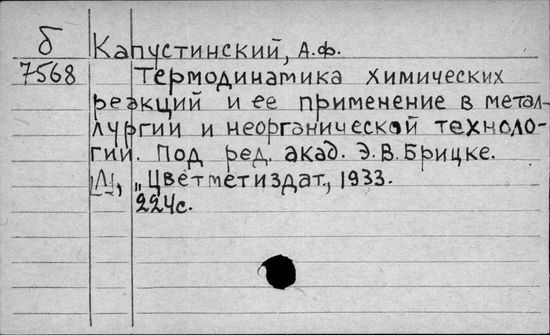 б Капустинский, А.Ф.
7568 Термодинамика химических
реакций и ее применение в метал-
лургии и неорганической техноло-
гии. Под ред. акад. Э.В.Брицке.
„Цветметиздат", 1933.
224с.